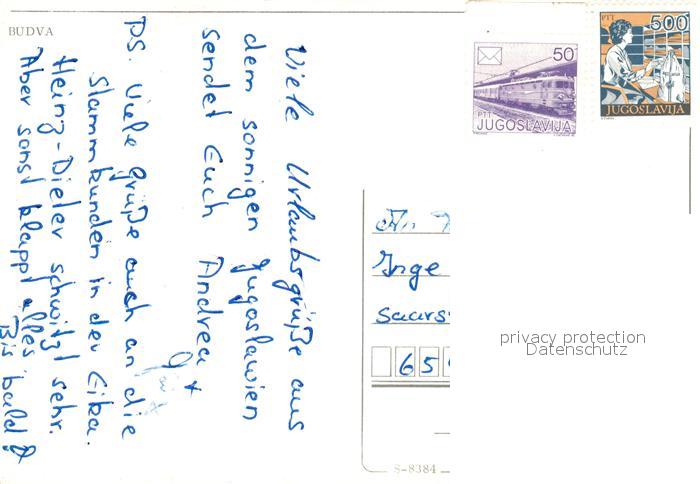 BUDVA
Viele Urlaubsgrüße aus
dem sonnigen Jugoslawien
sendet Euch Andrea +
PS. Viele Grüße auch an die
Stammkunden in der Eika.
Heinz-Dieter schwitzt sehr.
Aber sonst klappt alles
Bis bald
50
PTT
JUGOSLAVIJA
PTT
500
JUGOSLAVIJA
An
Inge
Saars
65
S-8384
privacy protection
Datenschutz